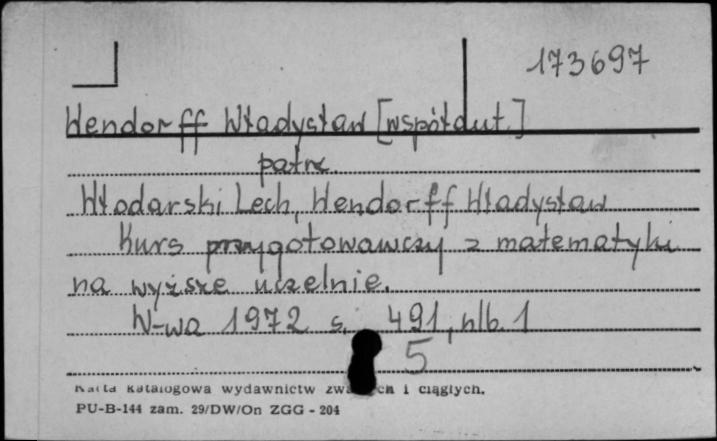 173697
Wendorff Władysław [współaut.]
patrz
Włodarski Lech, Wendorff Władysław
Kurs przygotowawczy z matematyki
na wyższe uczelnie.
W-wa 1972 s. 491, nlb. 1
5
Karta katalogowa wydawnictw i ciągłych.
PU-B-144 zam. 29/DW/On ZGG - 204